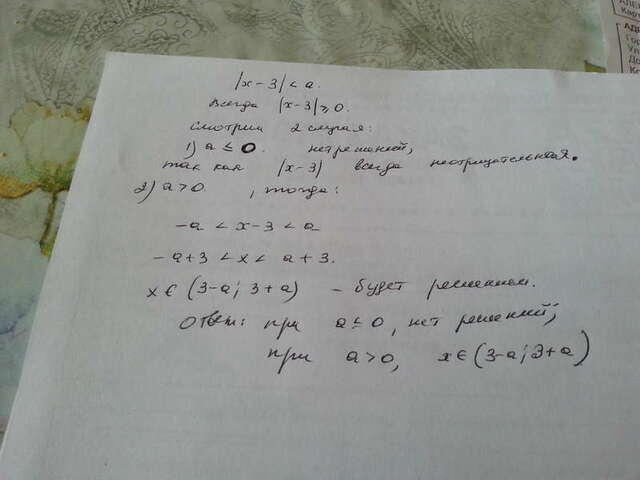 |x-3| < a.
Всегда |x-3| ≥ 0.
Смотрим 2 случая:
1) a ≤ 0. нет решений,
так как |x-3| всегда неотрицательная.
2) a > 0. , тогда:
-a < x-3 < a
-a+3 < x < a+3.
x ∈ (3-a; 3+a) - будет решением.
Ответ: при a ≤ 0, нет решений;
при a > 0, x ∈ (3-a; 3+a)